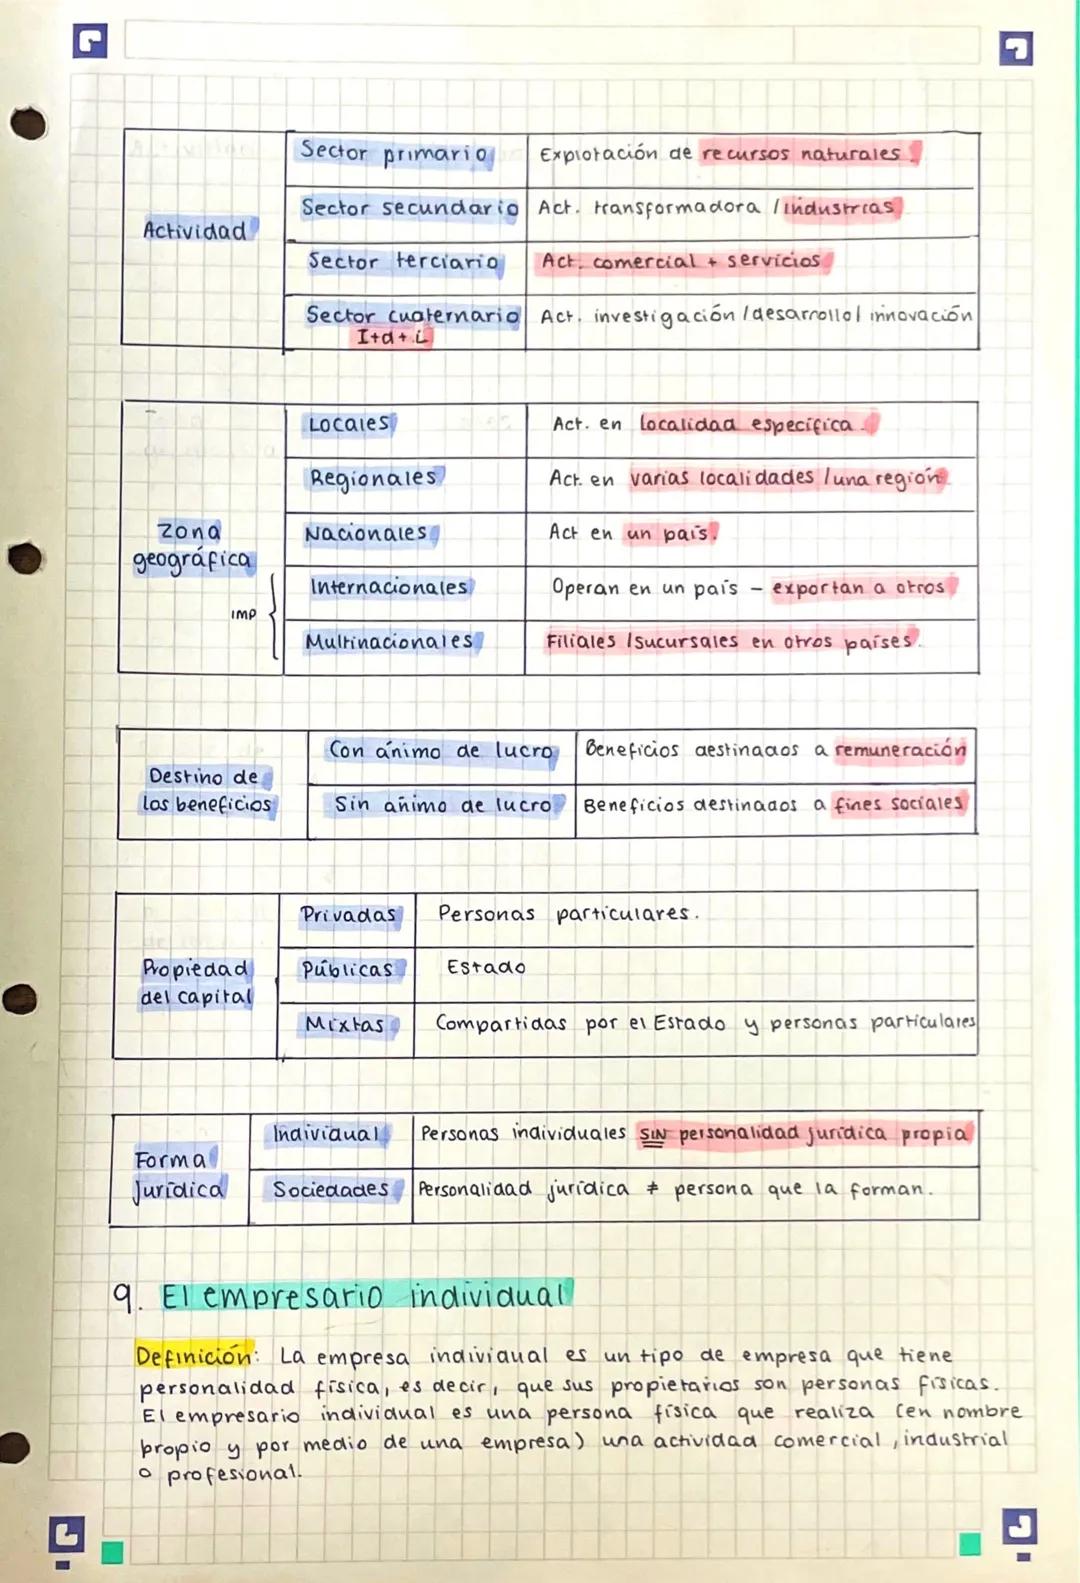 Actividad
Sector primario
Explotación de recursos naturales.
Sector secundario
Act. transformadora / industrias
Sector terciario
Act. comercial + servicios
Sector cuaternario
I+d+i
Act. investigación / desarrollo / innovación
Zona
geográfica
IMP
Locales
Act. en localidad específica.
Regionales
Act. en varias localidades / una región
Nacionales
Act en un país.
Internacionales
Operan en un país – exportan a otros
Multinacionales
Filiales / Sucursales en otros países.
Destino de
los beneficios
Con ánimo de lucro
Beneficios destinados a remuneración
Sin ánimo de lucro
Beneficios destinados a fines sociales
Propiedad
del capital
Privadas
Personas particulares.
Públicas
Estado
Mixtas
Compartidas por el Estado y personas particulares
Forma
Jurídica
Individual
Personas individuales SIN personalidad jurídica propia
Sociedades
Personalidad jurídica ≠ persona que la forman.
9. El empresario individual
Definición: La empresa individual es un tipo de empresa que tiene
personalidad física, es decir, que sus propietarios son personas físicas.
El empresario individual es una persona física que realiza (en nombre
propio y por medio de una empresa) una actividad comercial, industrial
o profesional.